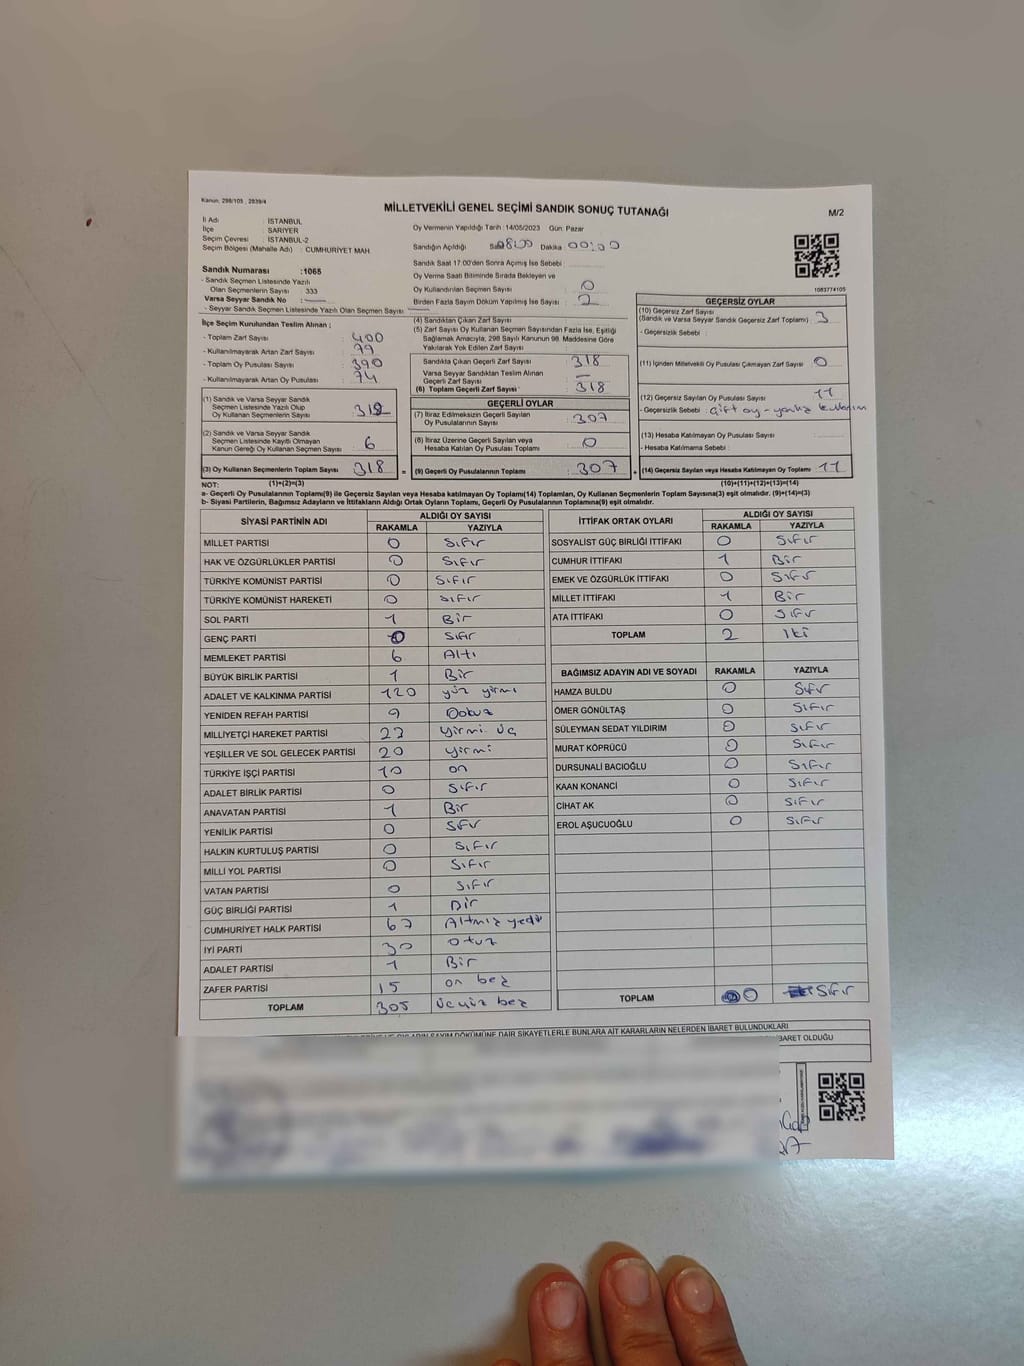 Kanun: 298/105 , 2839/4
MİLLETVEKİLİ GENEL SEÇİMİ SANDIK SONUÇ TUTANAĞI
M/2
İl Adı : İSTANBUL
İlçe : SARIYER
Seçim Çevresi : İSTANBUL-2
Seçim Bölgesi (Mahalle Adı) : CUMHURİYET MAH.
Sandık Numarası :1065
- Sandık Seçmen Listesinde Yazılı
Olan Seçmenlerin Sayısı : 333
Varsa Seyyar Sandık No :
- Seyyar Sandık Seçmen Listesinde Yazılı Olan Seçmen Sayısı :
Oy Vermenin Yapıldığı Tarih :14/05/2023 Gün: Pazar
Sandığın Açıldığı Saat 08:00 Dakika 00:00
Sandık Saat 17:00'den Sonra Açılmış İse Sebebi :
Oy Verme Saati Bitiminde Sırada Bekleyen ve
Oy Kullandırılan Seçmen Sayısı : 0
Birden Fazla Sayım Döküm Yapılmış İse Sayısı : 2
1083774105
İlçe Seçim Kurulundan Teslim Alınan ;
- Toplam Zarf Sayısı : 400
- Kullanılmayarak Artan Zarf Sayısı : 79
- Toplam Oy Pusulası Sayısı : 390
- Kullanılmayarak Artan Oy Pusulası : 74
(1) Sandık ve Varsa Seyyar Sandık
Seçmen Listesinde Yazılı Olup
Oy Kullanan Seçmenlerin Sayısı : 312
(2) Sandık ve Varsa Seyyar Sandık
Seçmen Listesinde Kayıtlı Olmayan
Kanun Gereği Oy Kullanan Seçmen Sayısı : 6
(3) Oy Kullanan Seçmenlerin Toplam Sayısı : 318
(4) Sandıktan Çıkan Zarf Sayısı :
(5) Zarf Sayısı Oy Kullanan Seçmen Sayısından Fazla İse, Eşitliği
Sağlamak Amacıyla, 298 Sayılı Kanunun 98. Maddesine Göre
Yakılarak Yok Edilen Zarf Sayısı :
Sandıkta Çıkan Geçerli Zarf Sayısı : 318
Varsa Seyyar Sandıktan Teslim Alınan
Geçerli Zarf Sayısı : —
(6) Toplam Geçerli Zarf Sayısı : 318
GEÇERLİ OYLAR
(7) İtiraz Edilmeksizin Geçerli Sayılan
Oy Pusulalarının Sayısı : 307
(8) İtiraz Üzerine Geçerli Sayılan veya
Hesaba Katılan Oy Pusulası Toplamı : 0
= (9) Geçerli Oy Pusulalarının Toplamı : 307
GEÇERSİZ OYLAR
(10) Geçersiz Zarf Sayısı
(Sandık ve Varsa Seyyar Sandık Geçersiz Zarf Toplamı) : 3
- Geçersizlik Sebebi :
(11) İçinden Milletvekili Oy Pusulası Çıkmayan Zarf Sayısı : 0
(12) Geçersiz Sayılan Oy Pusulası Sayısı : 11
- Geçersizlik Sebebi : Çift oy - yanlış kullanım
(13) Hesaba Katılmayan Oy Pusulası Sayısı :
- Hesaba Katılmama Sebebi :
+ (14) Geçersiz Sayılan veya Hesaba Katılmayan Oy Toplamı : 11
NOT: (1)+(2)=(3)
(10)+(11)+(12)+(13)=(14)
a- Geçerli Oy Pusulalarının Toplamı(9) ile Geçersiz Sayılan veya Hesaba katılmayan Oy Toplamı(14) Toplamları, Oy Kullanan Seçmenlerin Toplam Sayısına(3) eşit olmalıdır. (9)+(14)=(3)
b- Siyasi Partilerin, Bağımsız Adayların ve İttifakların Aldığı Ortak Oyların Toplamı, Geçerli Oy Pusulalarının Toplamına(9) eşit olmalıdır.
SİYASİ PARTİNİN ADI ALDIĞI OY SAYISI
RAKAMLA YAZIYLA
MİLLET PARTİSİ 0 Sıfır
HAK VE ÖZGÜRLÜKLER PARTİSİ 0 Sıfır
TÜRKİYE KOMÜNİST PARTİSİ 0 Sıfır
TÜRKİYE KOMÜNİST HAREKETİ 0 Sıfır
SOL PARTİ 1 Bir
GENÇ PARTİ 0 Sıfır
MEMLEKET PARTİSİ 6 Altı
BÜYÜK BİRLİK PARTİSİ 1 Bir
ADALET VE KALKINMA PARTİSİ 120 yüz yirmi
YENİDEN REFAH PARTİSİ 9 Dokuz
MİLLİYETÇİ HAREKET PARTİSİ 23 Yirmi üç
YEŞİLLER VE SOL GELECEK PARTİSİ 20 yirmi
TÜRKİYE İŞÇİ PARTİSİ 10 on
ADALET BİRLİK PARTİSİ 0 Sıfır
ANAVATAN PARTİSİ 1 Bir
YENİLİK PARTİSİ 0 Sıfır
HALKIN KURTULUŞ PARTİSİ 0 Sıfır
MİLLİ YOL PARTİSİ 0 Sıfır
VATAN PARTİSİ 0 Sıfır
GÜÇ BİRLİĞİ PARTİSİ 1 Bir
CUMHURİYET HALK PARTİSİ 67 Altmış yedi
İYİ PARTİ 30 otuz
ADALET PARTİSİ 1 Bir
ZAFER PARTİSİ 15 on beş
TOPLAM 305 üçyüz beş
İTTİFAK ORTAK OYLARI ALDIĞI OY SAYISI
RAKAMLA YAZIYLA
SOSYALİST GÜÇ BİRLİĞİ İTTİFAKI 0 Sıfır
CUMHUR İTTİFAKI 1 Bir
EMEK VE ÖZGÜRLÜK İTTİFAKI 0 Sıfır
MİLLET İTTİFAKI 1 Bir
ATA İTTİFAKI 0 Sıfır
TOPLAM 2 İki
BAĞIMSIZ ADAYIN ADI VE SOYADI RAKAMLA YAZIYLA
HAMZA BULDU 0 Sıfır
ÖMER GÖNÜLTAŞ 0 Sıfır
SÜLEYMAN SEDAT YILDIRIM 0 Sıfır
MURAT KÖPRÜCÜ 0 Sıfır
DURSUNALİ BACIOĞLU 0 Sıfır
KAAN KONANCİ 0 Sıfır
CİHAT AK 0 Sıfır
EROL AŞUCUOĞLU 0 Sıfır
TOPLAM 0 Sıfır
DÖKÜMÜNE DAİR ŞİKAYETLERLE BUNLARA AİT KARARLARIN NELERDEN İBARET BULUNDUKLARI
İBARET OLDUĞU